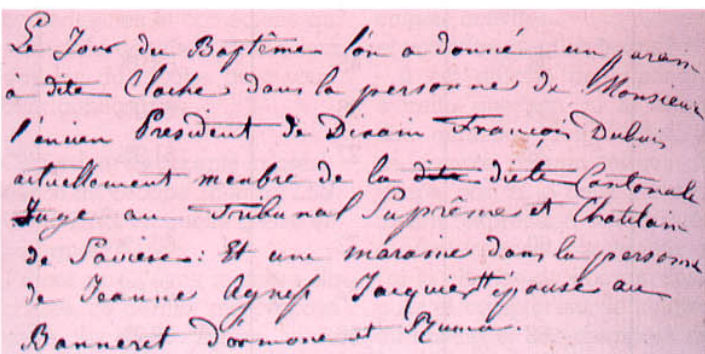 Le Jour du Baptême l'on a donné un parain
à dite Cloche dans la personne de Monsieur
l'encien President de Dixain François Dubuis
actuellement menbre de la dite diète Cantonale
Juge au Tribunal Suprême et Chatelain
de Savièse : Et une maraine dans la personne
de Jeanne Agness Jacquier épouse au
Banneret d'ormone et Zuma.